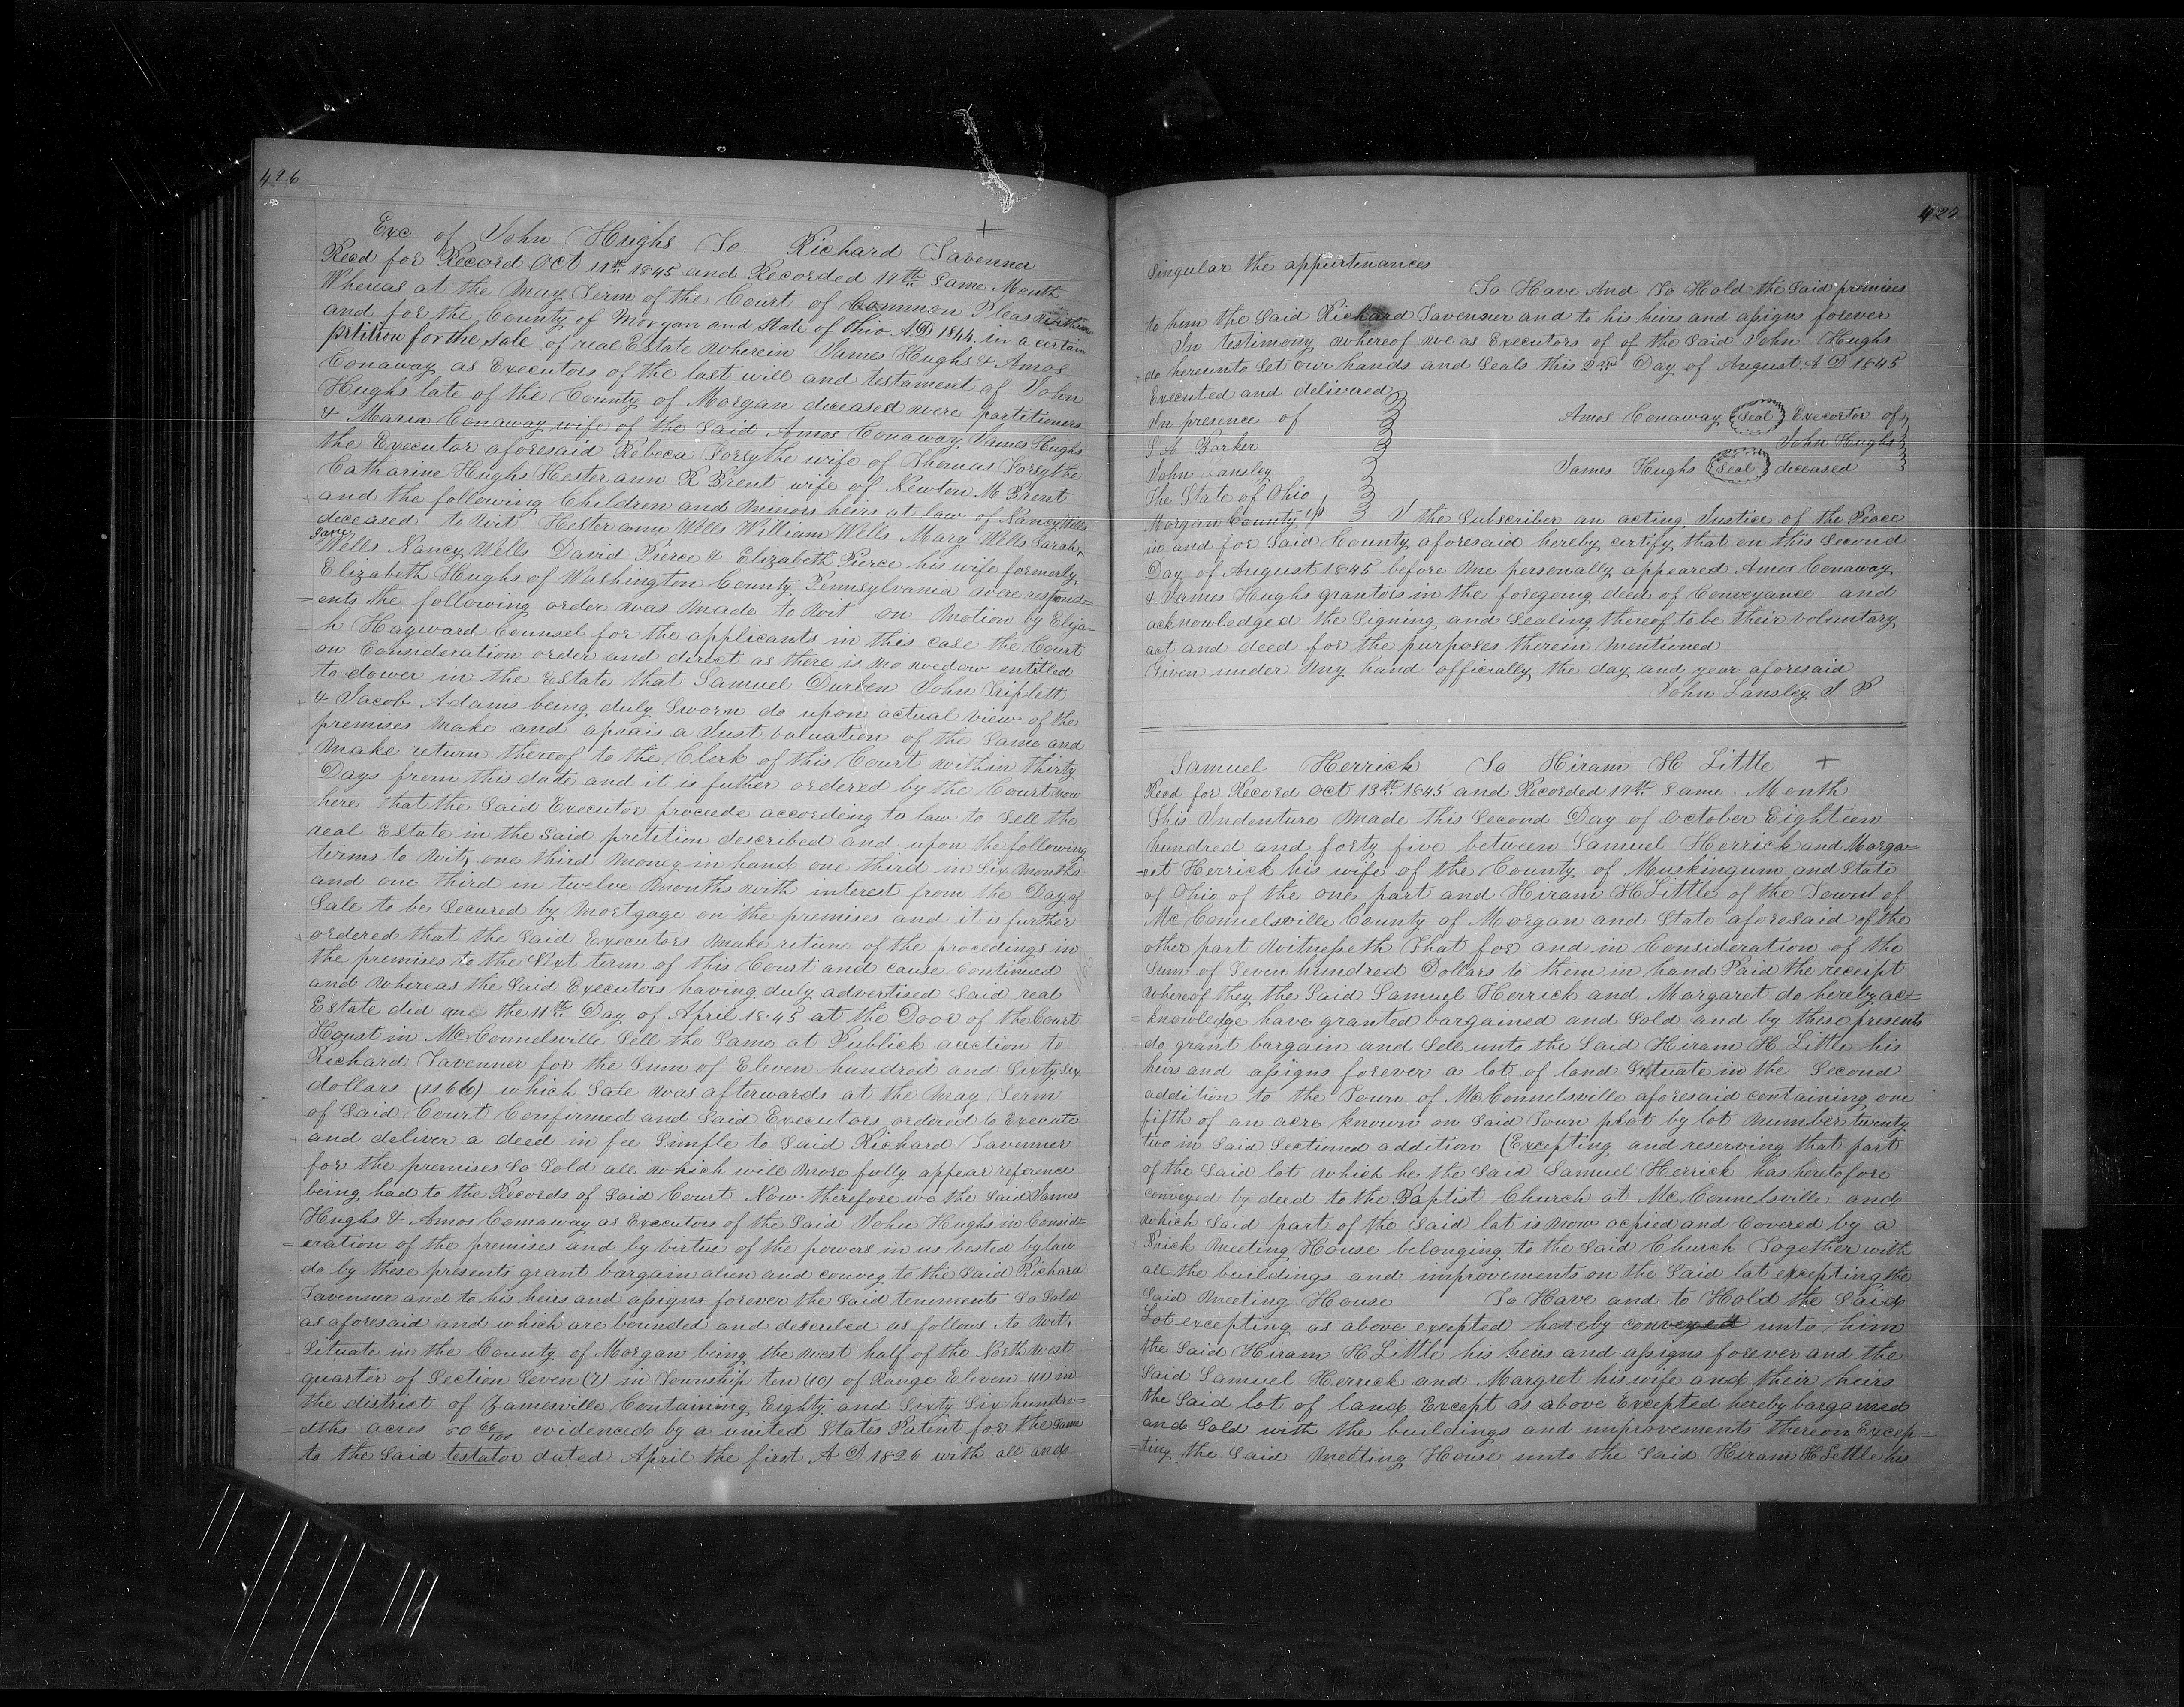 426
Exc of John Hughs To Richard Tavenner
Recd for Record Oct 11th 1845 and Recorded 17th Same Month
Whereas at the May Term of the Court of Common Pleas within
and for the County of Morgan and State of Ohio AD 1844 in a certain
petition for the sale of real Estate wherein James Hughs & Amos
Conaway as Executors of the last will and testament of John
Hughs late of the County of Morgan deceased were partitioners
& Maria Conaway wife of the said Amos Conaway James Hughs
the Executor aforesaid Rebeca Forsythe wife of Thomas Forsythe
Catharine Hughs Hesterann R Brent wife of Newton M Brent
and the following Children and Minors heirs at law of Nancy Wells
deceased to wit Hester anne Wells William Wells Mary Wells Sarah
Jane
Wells Nancy Wells David Pierce & Elizabeth Pierce his wife formerly
Elizabeth Hughs of Washington County Pennsylvania were respond=
=ents the following order was made to wit on Motion by Elija-
=h Hayward Counsel for the applicants in this case the Court
on Consideration order and direct as there is no wedow entitled
to dower in the Estate that Samuel Durben John Triplett
& Jacob Adams being duly Sworn do upon actual view of the
premises Make and aprais a Just valuation of the Same and
Make return thereof to the Clerk of this Court within thirty
Days from this date and it is futher ordered by the Court now
here that the Said Executor proceede according to law to Sell the
real Estate in the said pretition described and upon the following
terms to Wit, one third money in hand one third in Six Months
and one third in twelve Months with interest from the Day of
Sale to be Secured by Mortgage on the premises and it is further
ordered that the Said Executors Make return of the procedings in
the premises to the Next term of this Court and cause continued
and whereas the Said Executors having duly advertised Said real
Estate did on the 11th Day of April 1845 at the Door of the Court
Houst in McConnelsville Sell the Same at Publick auction to
Richard Tavenner for the Sum of Eleven hundred and Sixty Six
dollars (1166) which Sale was afterwards at the May Term
of Said Court Confirmed and Said Executors ordered to Execute
and deliver a deed in fee Simple to Said Richard Tavenner
for the premises So Sold all which will more fully appear reference
being had to the Records of Said Court Now therefore we the Said James
Hughs & Amos Comaway as Executors of the Said John Hughs in Consid=
=eration of the premises and by virtue of the powers in us vested by law
do by these presents grant bargain alien and convey to the Said Richard
Tavenner and to his heirs and assigns forever the Said tenements So Sold
as aforesaid and which are bounded and described as follows to Wit,
Situate in the County of Morgan being the West half of the North West
quarter of Section Seven (7) in Township ten (10) of Range Eleven (11) in
the district of Zanesville Containing Eighty and Sixty Six hundre=
=dths acres 80 66/100 evidenced by a united States Patent for the Same
to the Said testator dated April the first A D 1826 with all and
Singular the appurtenances
To Have And To Hold the Said premises
to him the Said Richard Tavenner and to his heirs and assigns forever
In testimony whereof we as Executors of of the Said John Hughs
do hereunto Set our hands and Seals this 2nd Day of August A D 1845
Executed and delivered
In presence of
Amos Conaway (Seal) Execortor of
Barker
John Hughs
John Lansley
James Hughs (Seal) deceased
The State of Ohio
Morgan County SS I the Subscriber an acting Justice of the Peace
in and for Said County aforesaid hereby certify that on this Second
Day of August 1845 before Me personally appeared Amos Conaway
& James Hughs grantors in the foregoing deed of Conveyance and
acknowledged the Signing and Sealing thereof to be their voluntary
act and deed for the purposes therein Mentioned
Given under My hand officially the day and year aforesaid
John Lansley J P
Samuel Herrick To Hiram H Little +
Recd for Record Oct 13th 1845 and Recorded 17th Same Month
This Indenture Made this Second Day of October Eighteen
hundred and forty five between Samuel Herrick and Marga=
=ret Herrick his wife of the County of Muskingum and State
of Ohio of the one part and Hiram H Little of the Town of
Mc Connelsville County of Morgan and State aforesaid of the
other part Witnesseth That for and in Consideration of the
Sum of Seven hundred Dollars to them in hand Paid the receipt
Whereof they the Said Samuel Herrick and Margaret do hereby ac=
=knowledge have granted bargained and Sold and by these presents
do grant bargain and Sell unto the Said Hiram H Little his
heirs and assigns forever a lot of land Situate in the Second
addition to the Town of McConnelsville aforesaid containing one
fifth of an acre known on Said Town plat by lot Number twenty
two in Said Sectioned addition (Excepting and reserving that part
of the Said lot which he the Said Samuel Herrick has heretofore
conveyed by deed to the Baptist Church at Mc Connelsville and
which Said part of the Said lat is Now ocpied and Covered by a
Brick Meeting House belonging to the Said Church Together with
all the buildings and improvements on the Said lat excepting the
Said Meeting House To Have and to Hold the Said
Lot excepting as above excepted hereby conveyed unto him
the Said Hiram H Little his heirs and assigns forever and the
Said Samuel Herrick and Margret his wife and their heirs
the Said lot of land Except as above Excepted hereby bargained
and Sold with the buildings and improvements thereon Excep=
=ting the Said Meeting House unto the Said Hiram H Settle his